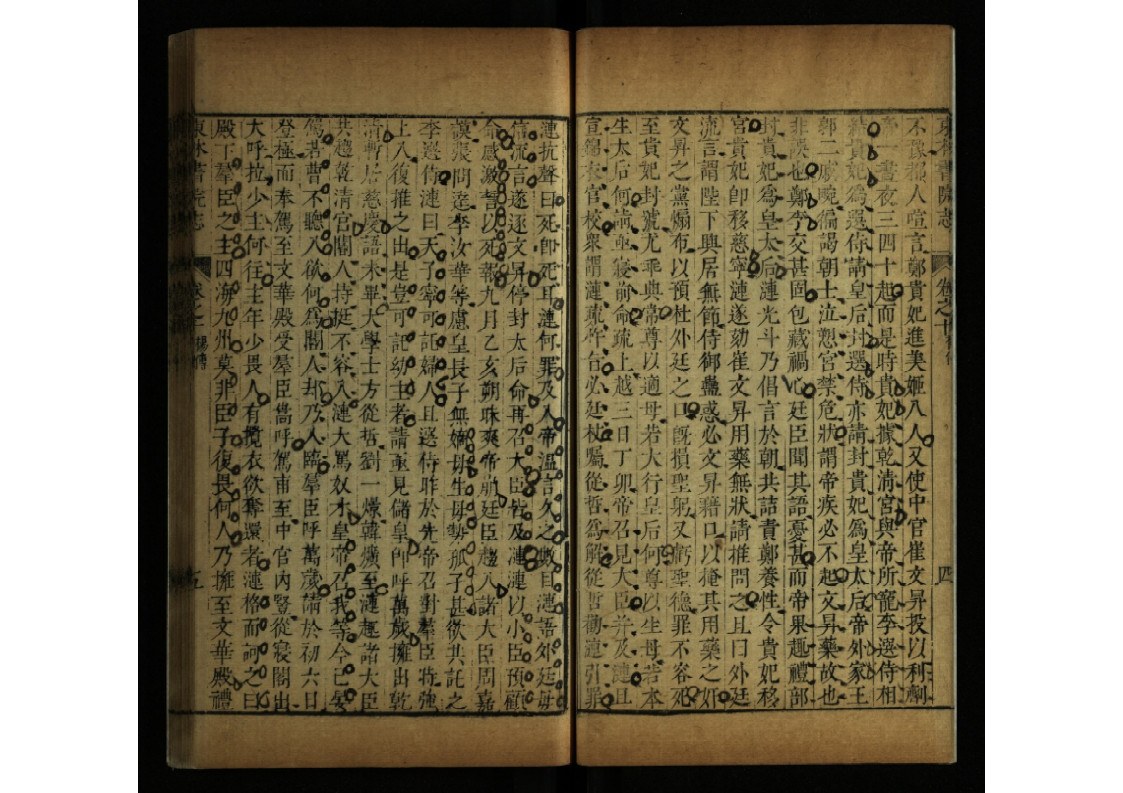 東林書院志 卷之十 楊傳 四
不豫都人喧言鄭貴妃進美姬八人又使中官崔文昇投以利劑
帝一晝夜三四十起而是時貴妃據乾清宮與帝所寵李選侍相
結貴妃爲選侍請皇后封選侍亦請封貴妃爲皇太后帝外家王
郭二戚畹徧謁朝士泣愬宮禁危狀謂帝疾必不起文昇藥故也
非誤也鄭李交甚固包藏禍心廷臣聞其語憂甚而帝果趣禮部
封貴妃爲皇太后漣光斗乃倡言於朝共詰責鄭養性令貴妃移
宮貴妃卽移慈寧漣遂劾崔文昇用藥無狀請推問之且曰外廷
流言謂陛下興居無節侍御蠱惑必文昇藉口以掩其用藥之奸
文昇之黨煽布以預杜外廷之口旣損聖躬又虧聖德罪不容死
至貴妃封號尤乖典常尊以適母若大行皇后何尊以生母若本
生太后何請亟寢前命疏上越三日丁卯帝召見大臣幷及漣且
宣錦衣官校衆謂漣疏忤旨必廷杖囑從哲爲解從哲勸漣引罪
漣抗聲曰死卽死耳漣何罪及入帝溫言久之數目漣語外廷毋
信流言遂逐文昇停封太后命再召大臣皆及漣漣以小臣預顧
命感激誓以死報九月乙亥朔昧爽帝崩廷臣趨入諸大臣周嘉
謨張問達李汝華等慮皇長子無嫡母生母勢孤孑甚欲共託之
李選侍漣曰天子寧可託婦人且選侍昨於先帝召對羣臣時強
上入復推之出是豈可託幼主者請亟見儲皇卽呼萬歲擁出乾
清暫居慈慶語未畢大學士方從哲劉一燝韓爌至漣趣諸大臣
共趨乾清宮閽人持挺不容入漣大罵奴才皇帝召我等今已晏
駕若曹不聽入欲何爲閽人却乃入臨羣臣呼萬歲請於初六日
登極而奉駕至文華殿受羣臣嵩呼駕甫至中宮內豎從寢閣出
大呼拉少主何往主年少畏人有攬衣欲奪還者漣格而訶之曰
殿下羣臣之主四海九州莫非臣子復畏何人乃擁至文華殿禮
東林書院志 卷之十 楊傳 五